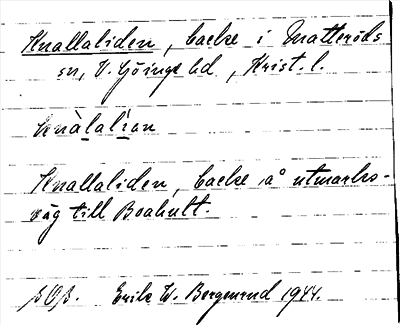 Knallaliden, backe i Matteröds
sn, V. Göinge hd, Krist. l.
knàlalian
Knallaliden, backe å utmarks-
väg till Boahult.
Erik W. Bergmand 1944.